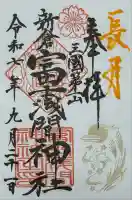 長月
奉拝
三國第一山
新倉富士浅間神社
令和六年九月二十一日